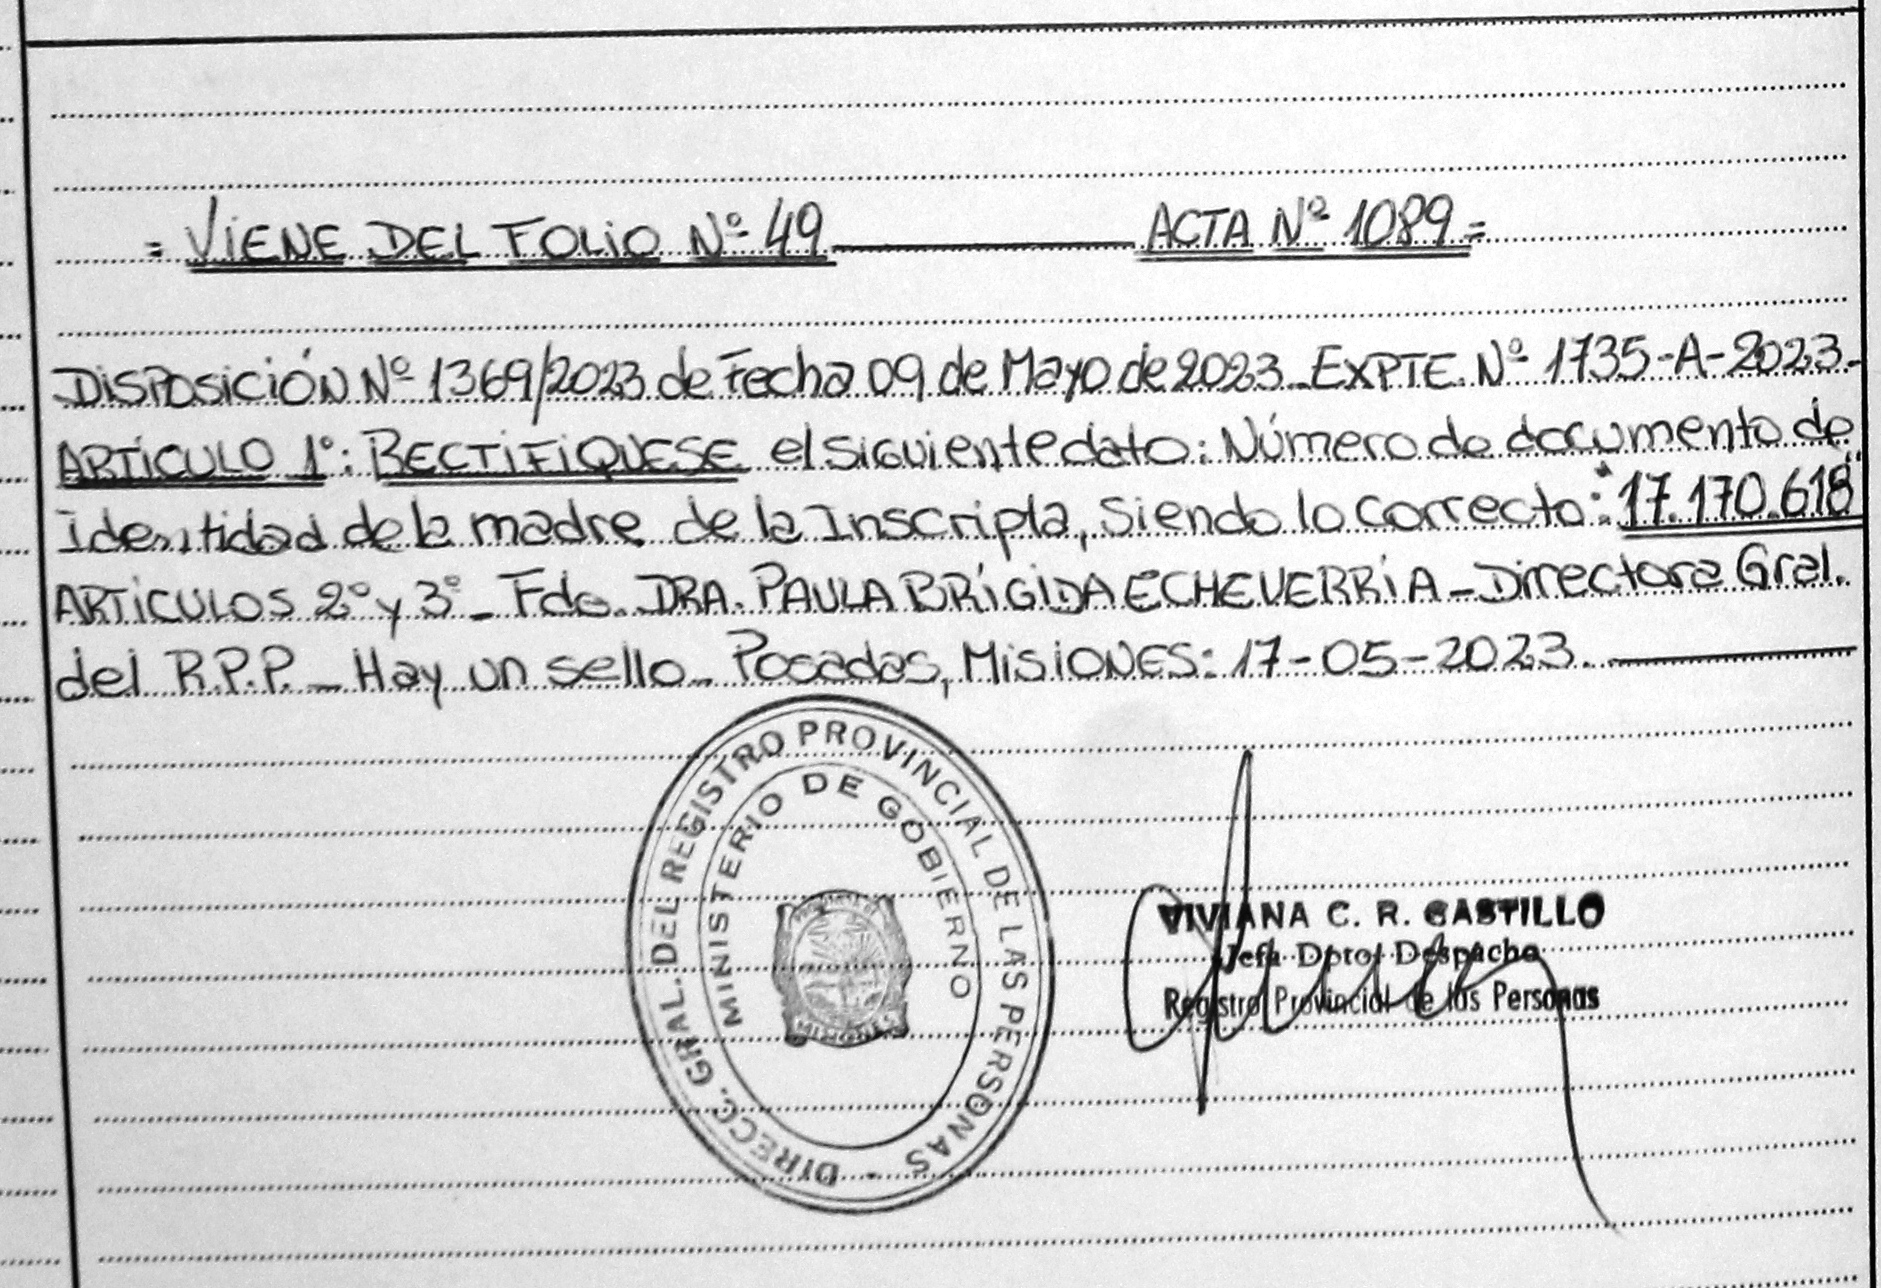 = VIENE DEL FOLIO Nº 49 ACTA Nº 1089 =
DISPOSICIÓN Nº 1369/2023 de Fecha 09 de Mayo de 2023. EXPTE. Nº 1735-A-2023.-
ARTÍCULO 1º: RECTIFIQUESE el siguiente dato: Número de documento de
Identidad de la madre de la Inscripta, Siendo lo correcto: "17.170.618"
ARTICULOS 2º y 3º - Fdo. DRA. PAULA BRÍGIDA ECHEVERRÍA - Directora Gral.
del R.P.P. - Hay un sello - Posadas, MISIONES: 17-05-2023.
DIRECC. GRAL. DEL REGISTRO PROVINCIAL DE LAS PERSONAS -
MINISTERIO DE GOBIERNO
VIVIANA C. R. CASTILLO
Jefa Dpto. Despacho
Registro Provincial de las Personas